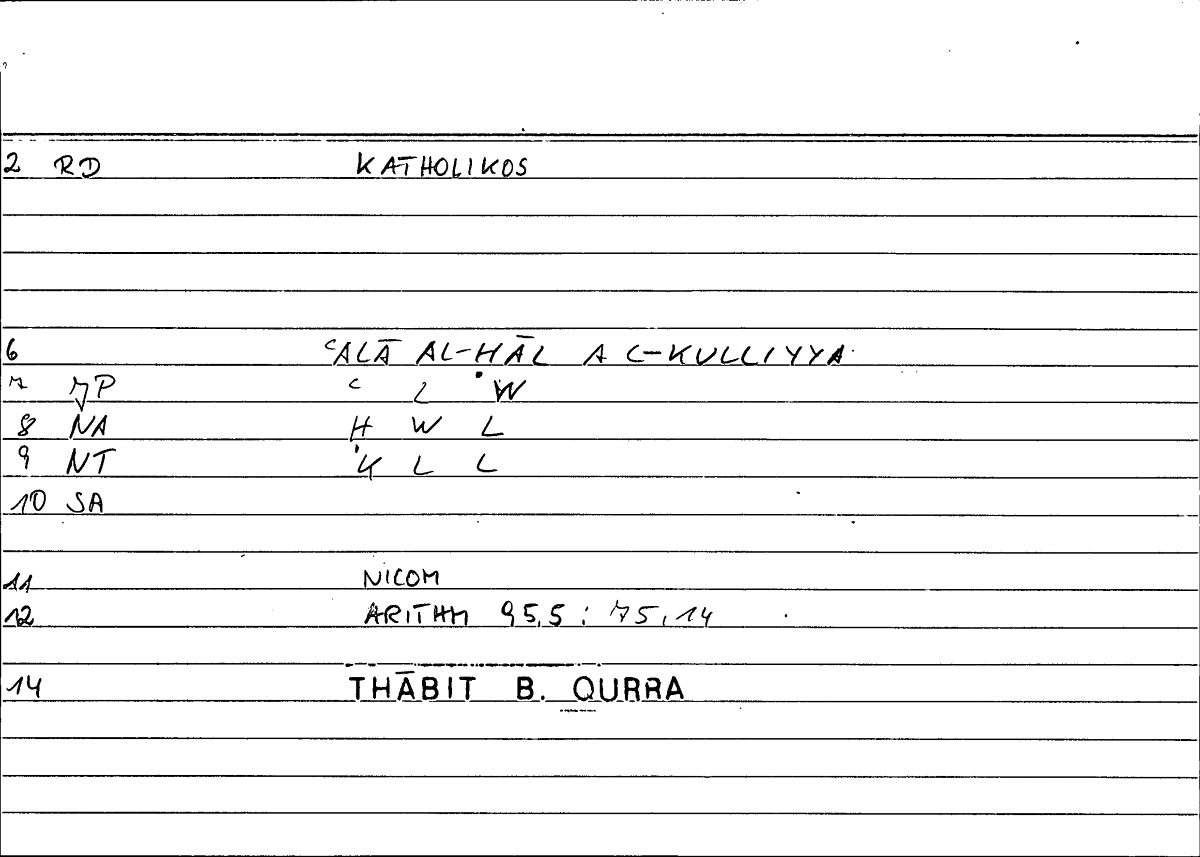 2 RD KATHOLIKOS
6 ʿALĀ AL-HĀL AL-KULLIYYA
7 JP ʿ L W
8 NA H W L
9 NT K L L
10 SA
11 NICOM
12 ARITHM 95,5 : 75,14
14 THĀBIT B. QURRA